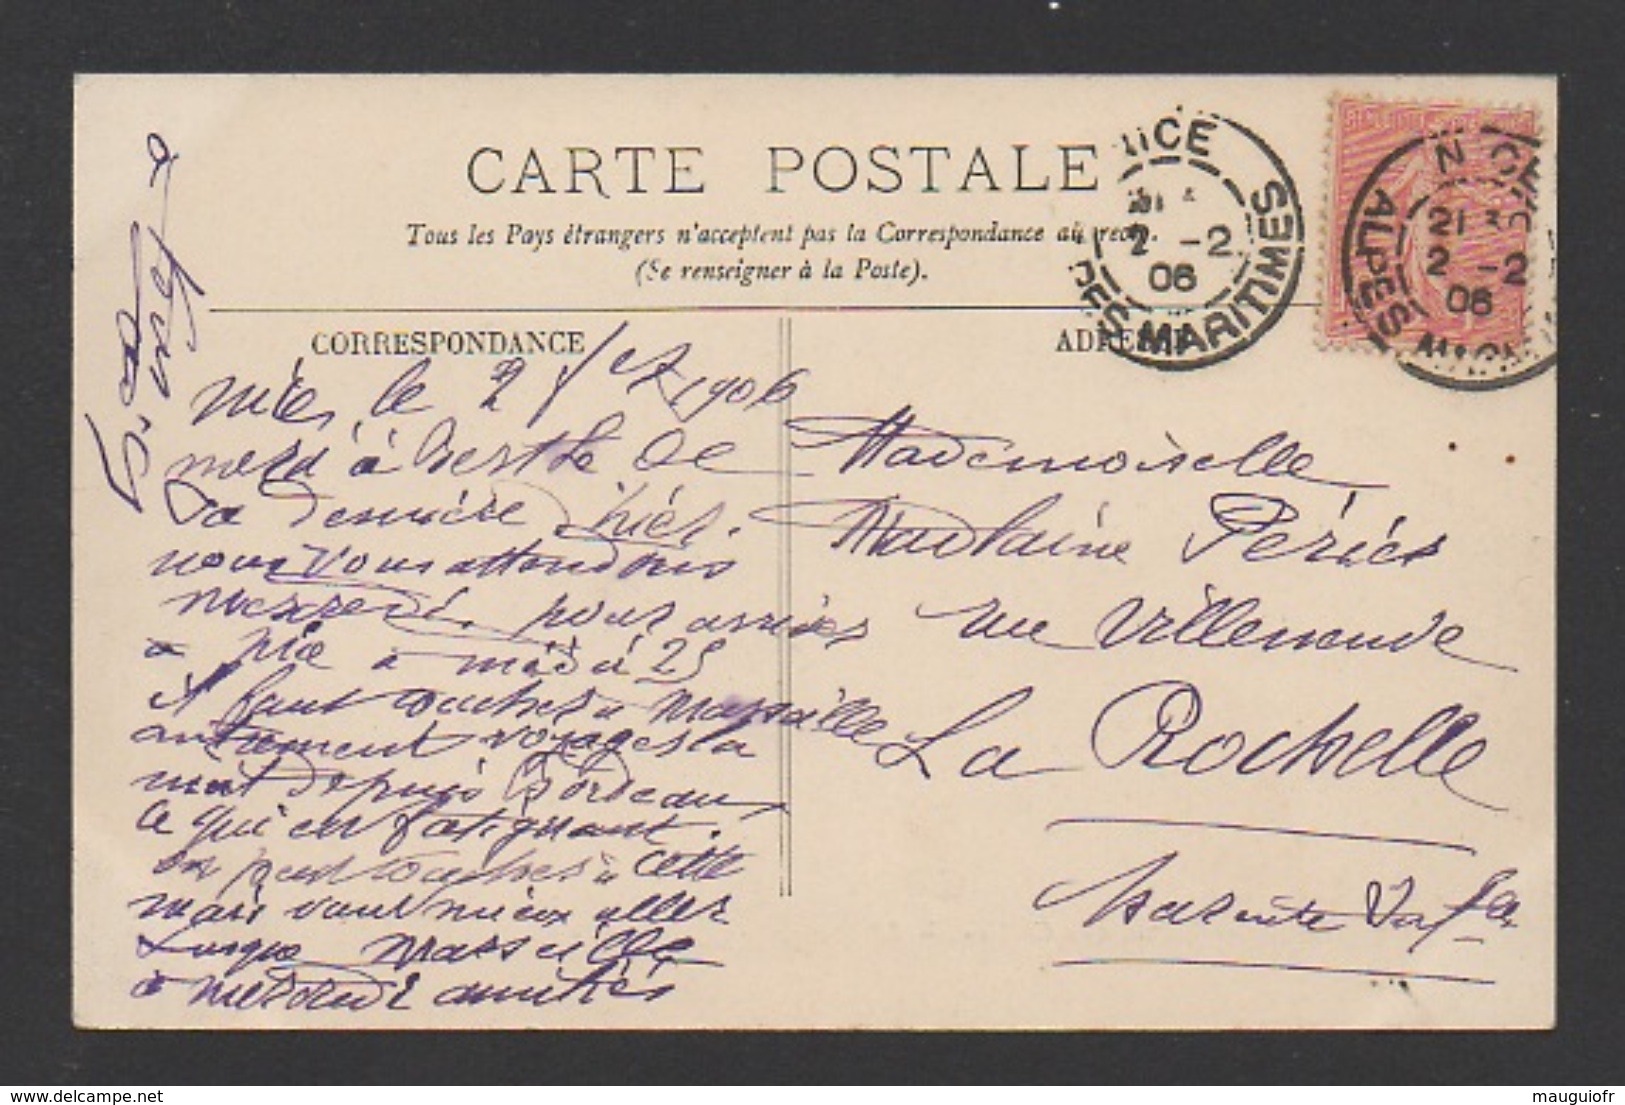 CARTE POSTALE
Tous les Pays étrangers n'acceptent pas la Correspondance au recto.
(Se renseigner à la Poste).
CORRESPONDANCE
ADRESSE
NICE
2 -2
06
ALPES MARITIMES
NICE
21
2 -2
06
ALPES
Nice, le 2 1906
merci à Berthe de
Sa dernière
nous vous attendons
mercredi. pour arriver
a Nice à midi 25
il faut coucher a Marseille
autrement voyager la
nuit depuis Bordeaux
ce qui est fatiguant.
on peut coucher à cette
mais vaut mieux aller
Jusque Marseille
à mercredi amitiés
Mademoiselle
Madlaine Périer
rue Villeneuve
La Rochelle
Charente Inf
mauguiofr